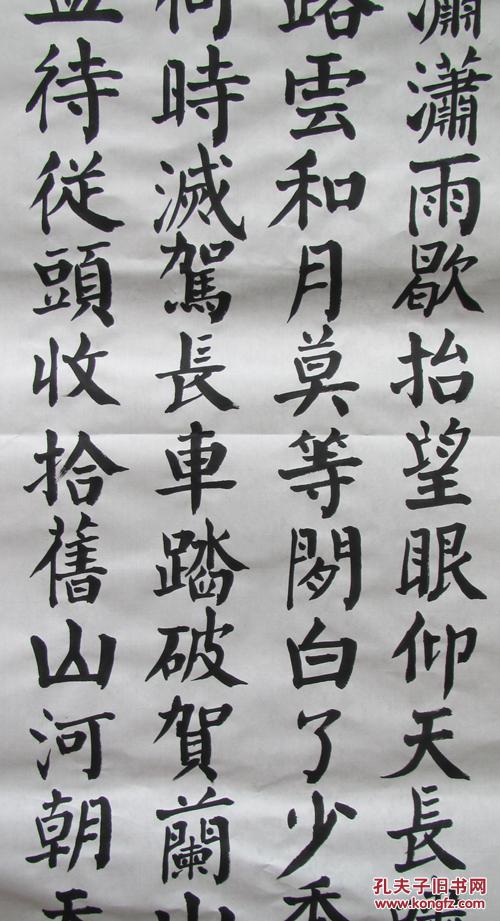 瀟瀟雨歇抬望眼仰天長
路雲和月莫等閒白了少
何時滅駕長車踏破賀蘭山
血待従頭收拾舊山河朝天
孔夫子旧书网
www.kongfz.com